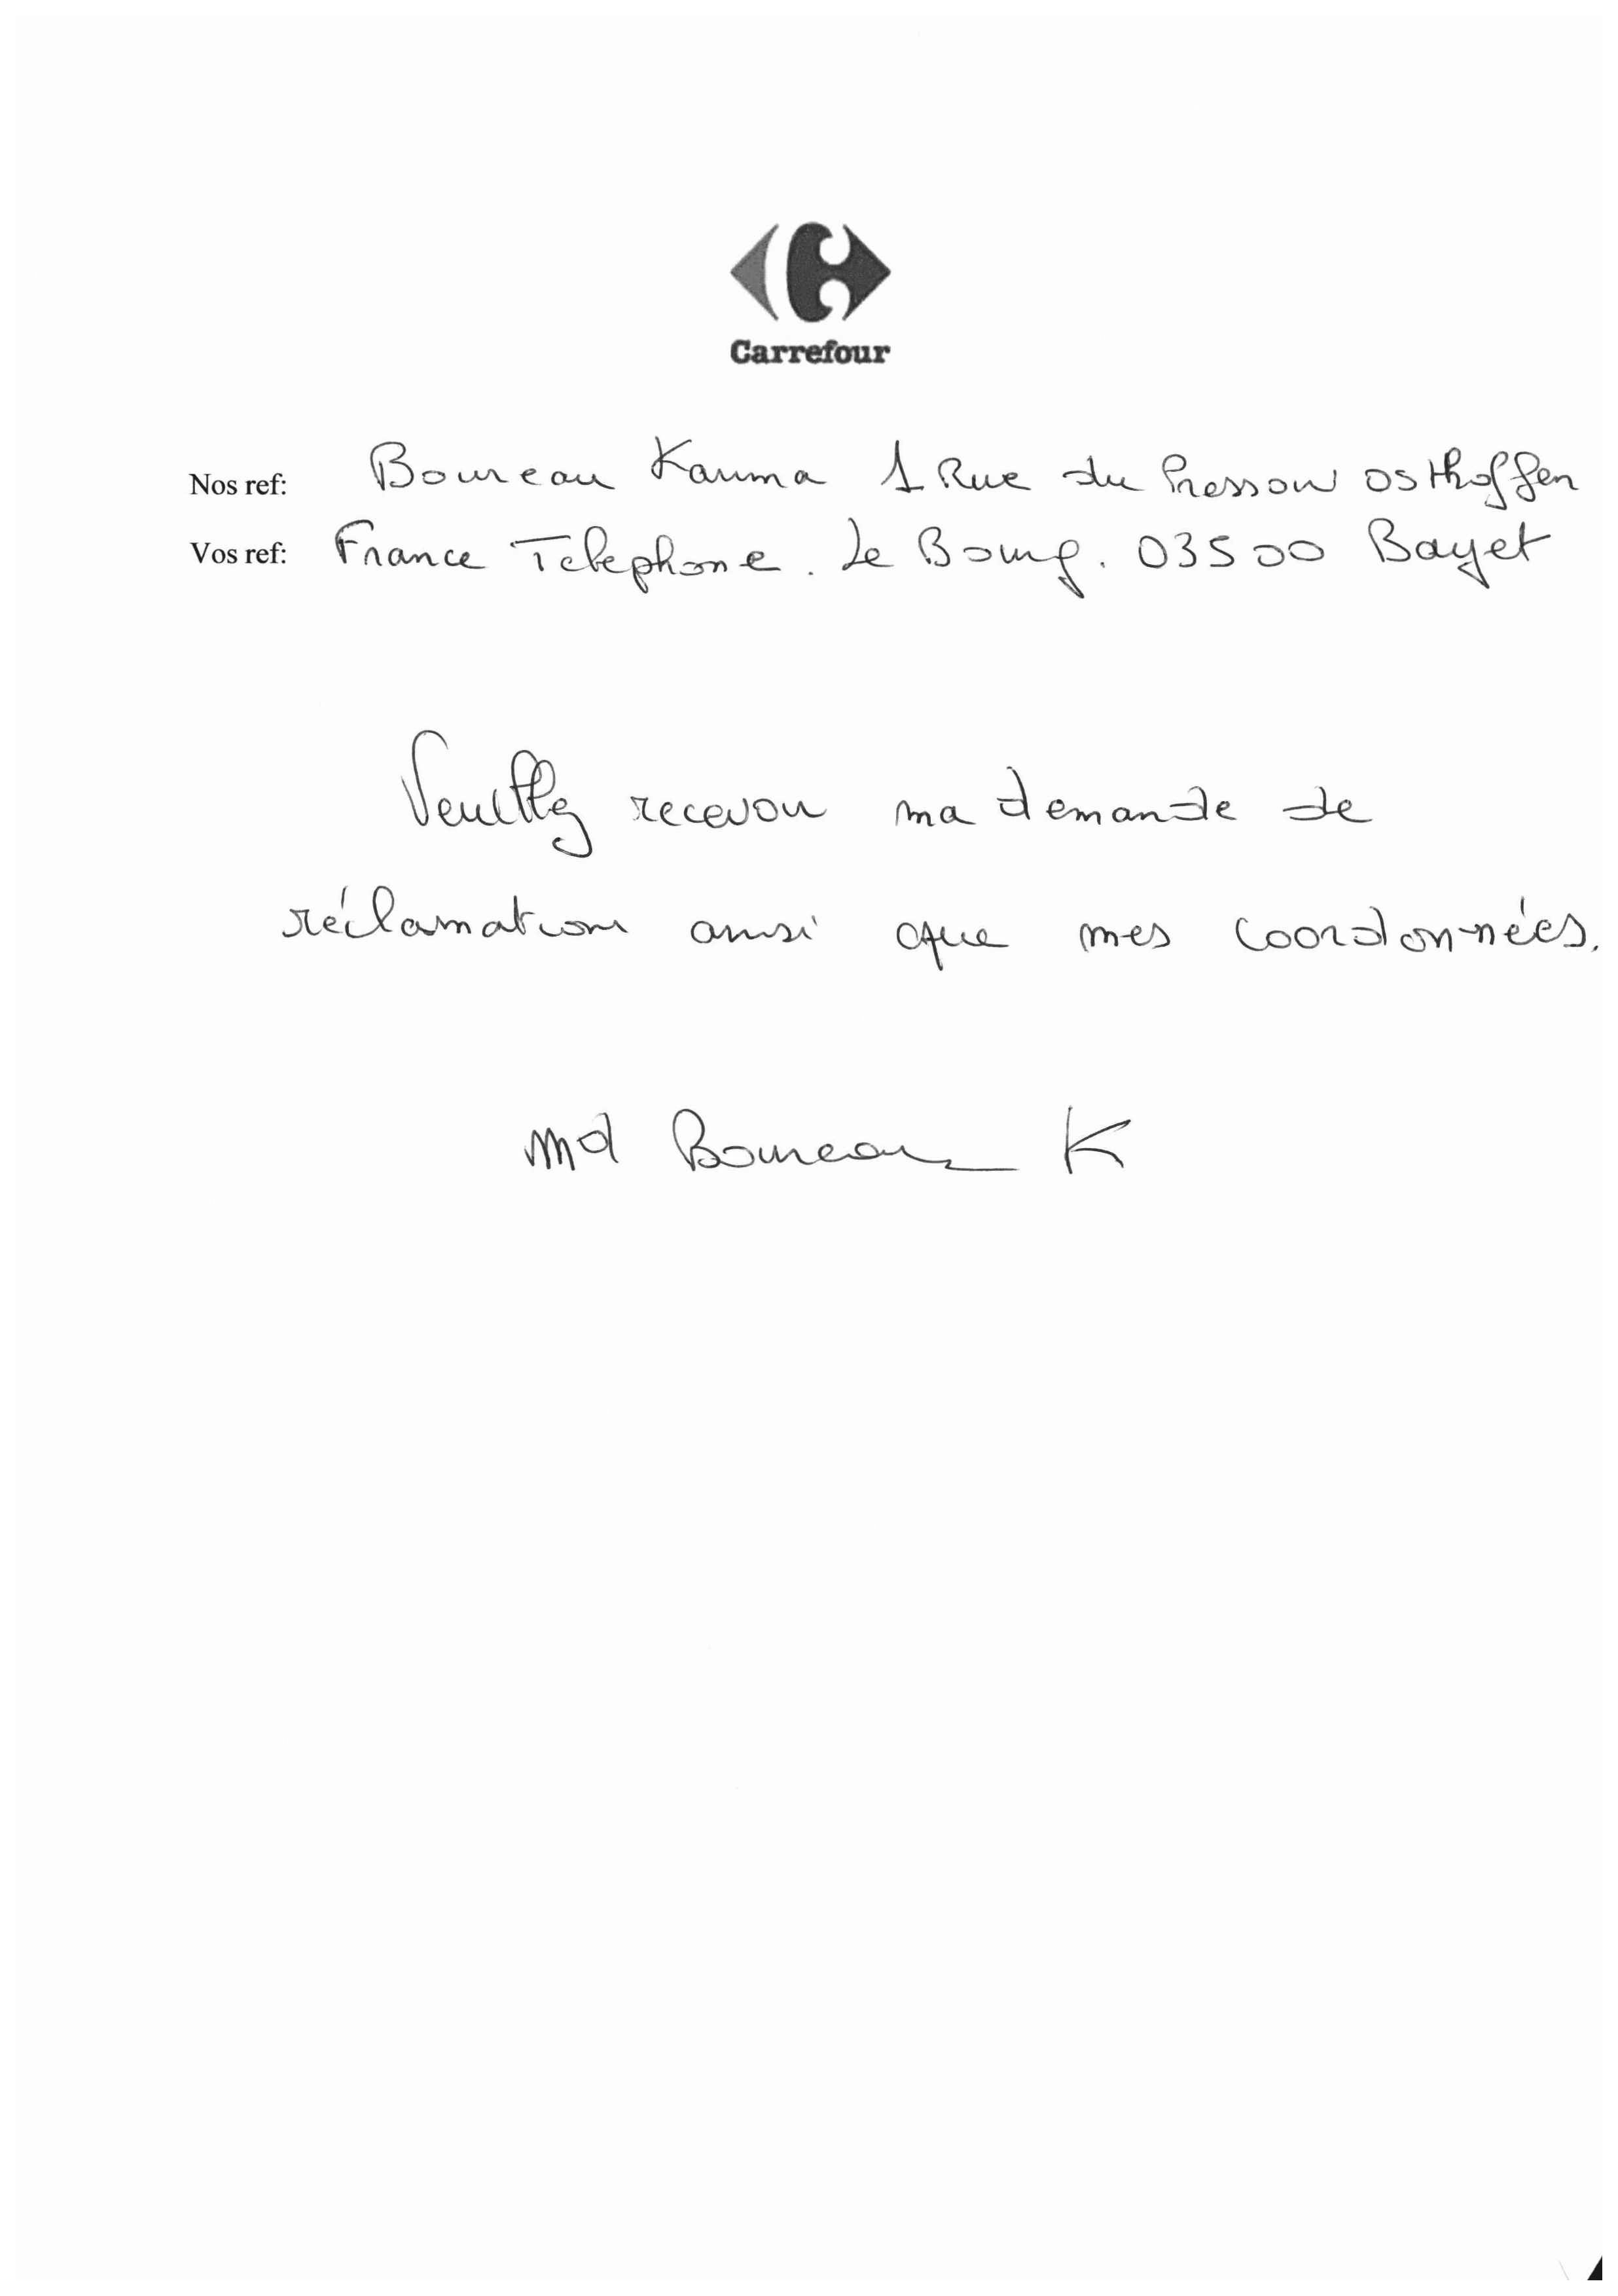 Carrefour
Nos ref: Boureau Karima 1 Rue du Pressoir Osthoffen
Vos ref: France Telephone. Le Bourg. 03500 Bayet
Veuillez recevoir ma demande de
réclamation ainsi que mes coordonnées.
Md Boureau K